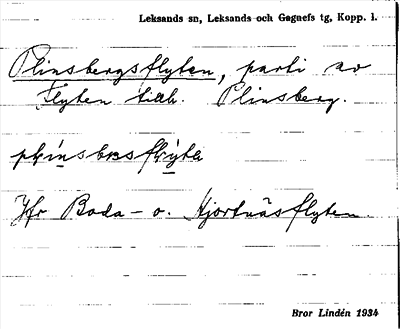 Leksands sn, Leksands och Gagnefs tg, Kopp. l.
Plinsbergsflyten, parti av
Flyten tillh. Plinsberg.
Jfr Boda- o. Hjortnäsflyten.
Bror Lindén 1934